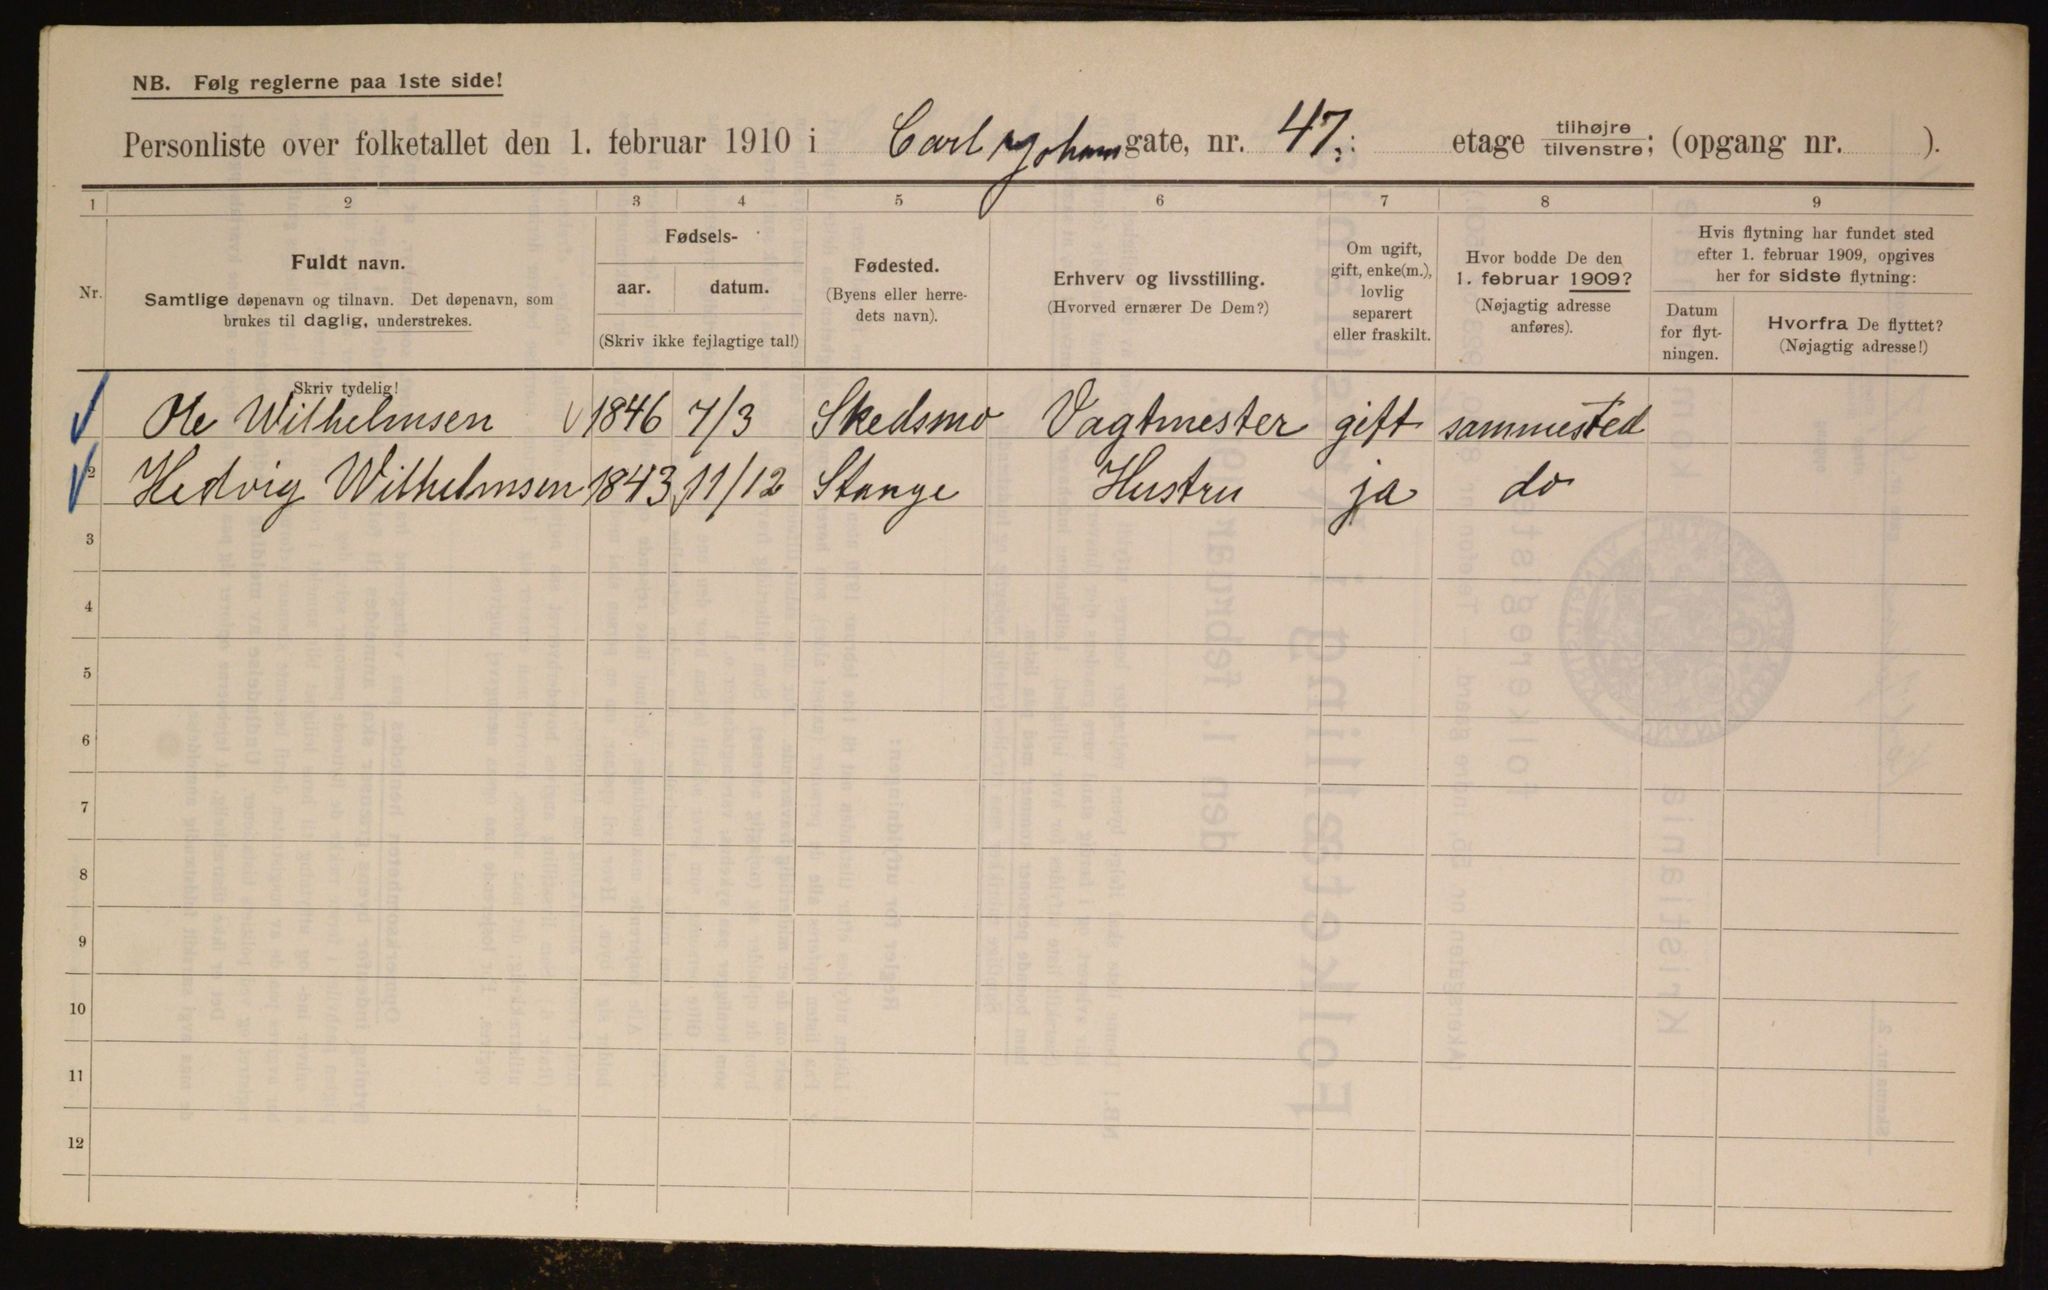 NB. Følg reglerne paa 1ste side!
Personliste over folketallet den 1. februar 1910 i Carl Johans gate, nr. 47.; etage tilhøjre tilvenstre; (opgang nr. ).
1 2 3 4 5 6 7 8 9
Nr.
Fuldt navn.
Samtlige døpenavn og tilnavn. Det døpenavn, som
brukes til daglig, understrekes.
Skriv tydelig!
Fødsels-
aar. datum.
(Skriv ikke fejlagtige tal!)
Fødested.
(Byens eller herre-
dets navn).
Erhverv og livsstilling.
(Hvorved ernærer De Dem?)
Om ugift,
gift, enke(m.),
lovlig
separert
eller fraskilt.
Hvor bodde De den
1. februar 1909?
(Nøjagtig adresse
anføres).
Hvis flytning har fundet sted
efter 1. februar 1909, opgives
her for sidste flytning:
Datum
for flyt-
ningen.
Hvorfra De flyttet?
(Nøjagtig adresse!)
Ole Wilhelmsen 1846 7/3 Skedsmo Vagtmester gift sammested
2 Hedvig Wilhelmsen 1843 11/12 Stange Hustru ja do
3
4
5
6
7
8
9
10
11
12